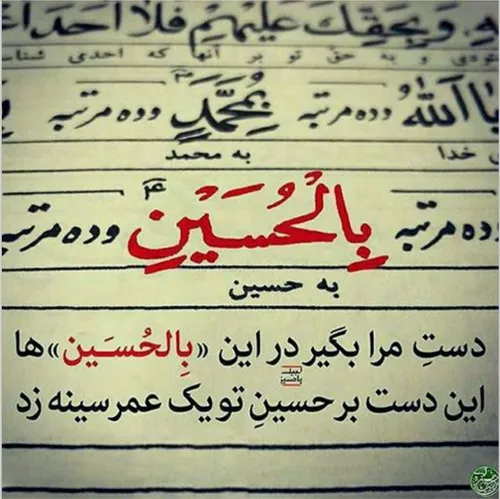 وَبِحَقِّكَ عَلَيْهِمْ فَلَا أَحَدَ
و به حق تو بر آنها که احدی
اَللهُ وده مرتبه بِمُحَمَّدٍ وده مرتبه
خدا به محمد
ده مرتبه بِالْحُسَيْنِ وده مرتبه
به حسین
دستِ مرا بگیر در این «بِالحُسَین» ها
این دست بر حسینِ تو یک عمر سینه زد